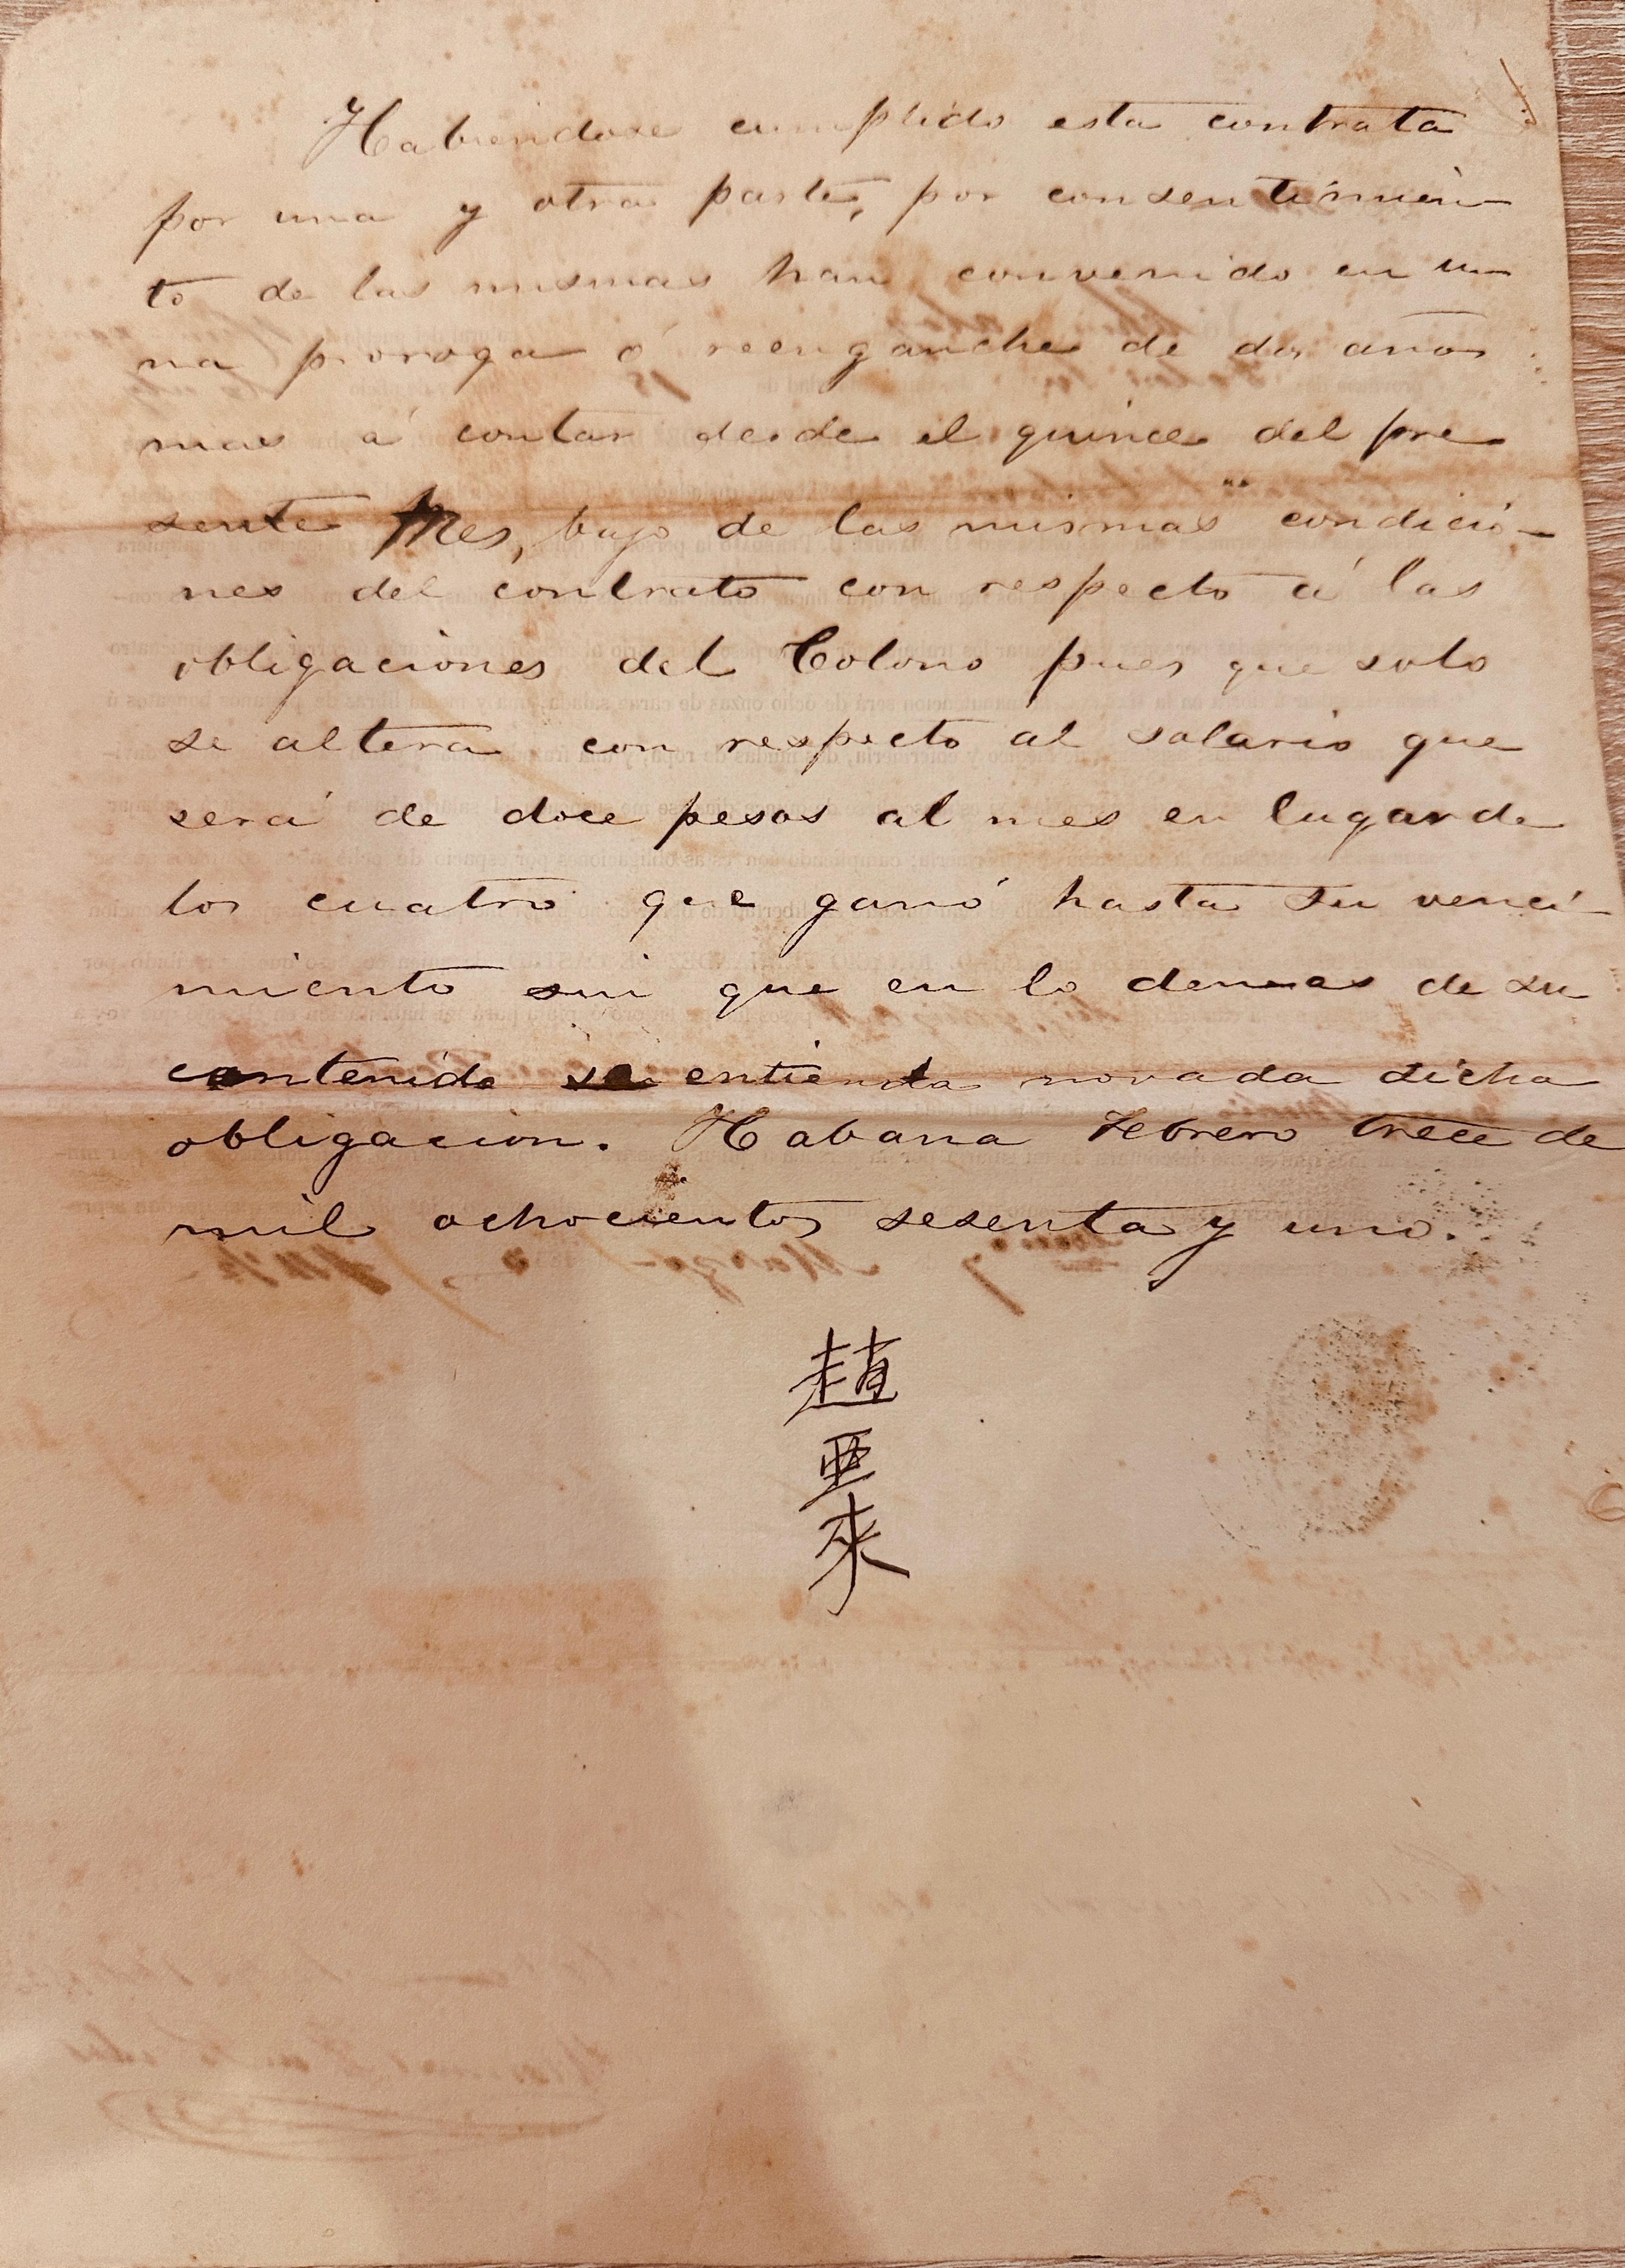 Habiendose cumplido esta contrata
por una y otra parte, por consentimien-
to de las mismas han convenido en u-
na proroga ó reenganche de dos años
mas á contar desde el quince del pre
sente Mes, bajo de las mismas condicio-
nes del contrato con respecto á las
obligaciones del Colono pues que solo
se altera con respecto al salario que
será de doce pesos al mes en lugar de
los cuatro que ganó hasta su venci-
miento sin que en lo demas de su
contenido se entienda novada dicha
obligacion. Habana Febrero trece de
mil ochocientos sesenta y uno.
趙
亜
來